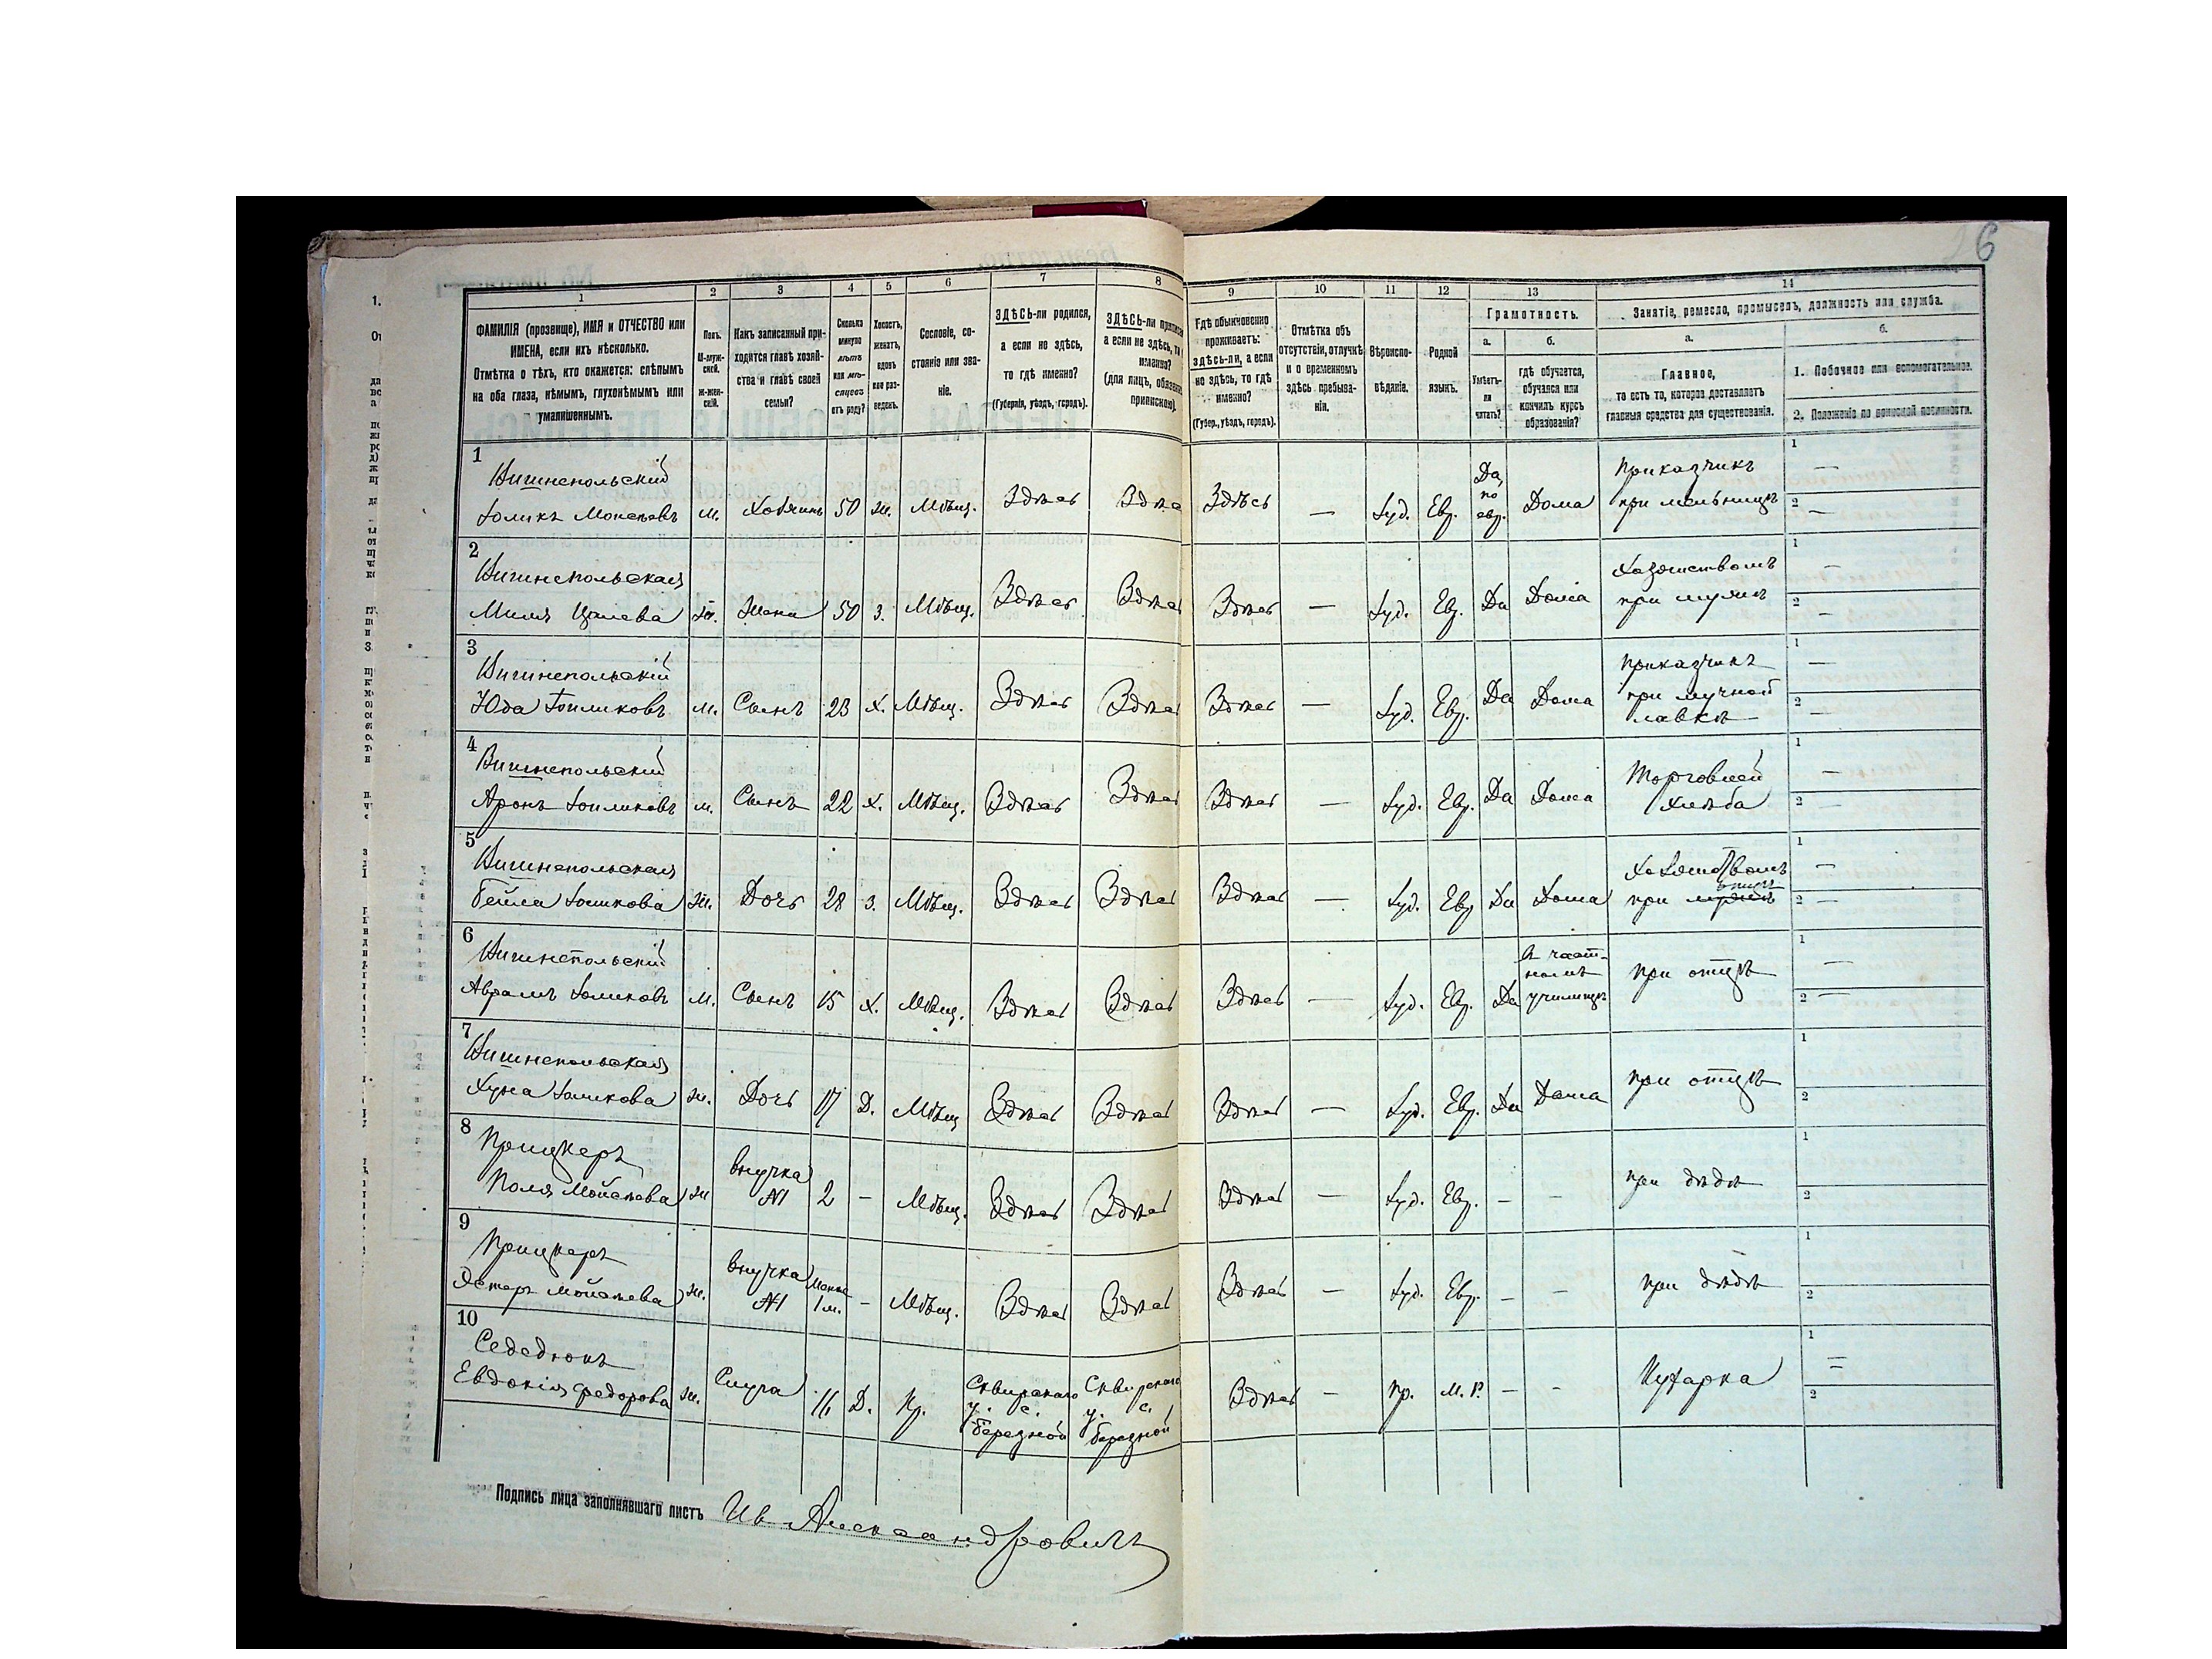 6
1 2 3 4 5 6 7 8 9 10 11 12 13 14
ФАМИЛІЯ (прозвище), ИМЯ и ОТЧЕСТВО или
ИМЕНА, если ихъ нѣсколько.
Отмѣтка о тѣхъ, кто окажется: слѣпымъ
на оба глаза, нѣмымъ, глухонѣмымъ или
умалишеннымъ.
Полъ.
М-муж-
ской.
ж-жен-
скій.
Какъ записанный при-
ходится главѣ хозяй-
ства и главѣ своей
семьи?
Сколько
минуло
лѣтъ
или мѣ-
сяцевъ
отъ роду?
Холостъ,
женатъ,
вдовъ
или раз-
веденъ.
Сословіе, со-
стояніе или зва-
ніе.
ЗДѢСЬ-ли родился,
а если не здѣсь,
то гдѣ именно?
(Губернія, уѣздъ, городъ).
ЗДѢСЬ-ли
а если не здѣсь, то
именно?
(для лицъ,
припискою).
Гдѣ обыкновенно
проживаетъ:
здѣсь-ли, а если
не здѣсь, то гдѣ
именно?
(Губер., уѣздъ, городъ).
Отмѣтка объ
отсутствіи, отлучкѣ
и о временномъ
здѣсь пребыва-
ніи.
Вѣроиспо-
вѣданіе.
Родной
языкъ.
Грамотность.
а.
Умѣетъ-
ли
читать?
б.
гдѣ обучается,
обучался или
кончилъ курсъ
образованія?
Занятіе, ремесло, промыселъ, должность или служба.
а.
Главное,
то есть то, которое доставляетъ
главныя средства для существованія.
б.
1. Побочное или вспомогательное.
2. Положеніе по воинской повинности.
1
Вишнепольскій
м. Хозяинъ 50 ж. Мѣщ. Здѣсь Здѣсь Здѣсь — Іуд. Евр.
Да, по евр. Дома
Приказчикъ
при мельницѣ
1 —
2 —
2
Вишнепольская
Миля
ж. Жена 50 з. Мѣщ. Здѣсь Здѣсь Здѣсь — Іуд. Евр. Да Дома
при мужѣ
1 —
2 —
3
Вишнепольскій
Юда
м. Сынъ 23 х. Мѣщ. Здѣсь Здѣсь Здѣсь — Іуд. Евр. Да Дома
Приказчикъ
при мучной
лавкѣ
1 —
2 —
4
Вишнепольскій
Аронъ
м. Сынъ 22 х. Мѣщ. Здѣсь Здѣсь Здѣсь — Іуд. Евр. Да Дома
Торговлей
хлѣба
1 —
2 —
5
Вишнепольская
Бейла
ж. Дочь 28 з. Мѣщ. Здѣсь Здѣсь Здѣсь — Іуд. Евр Да Дома
при
1 —
2 —
6
Вишнепольскій
Аврамъ
м. Сынъ 15 х. Мѣщ. Здѣсь Здѣсь Здѣсь — Іуд. Евр. Да
В част-
номъ
училищѣ
при отцѣ
1 —
2 —
7
Вишнепольская
ж. Дочь 17 Д. Мѣщ Здѣсь Здѣсь Здѣсь — Іуд. Евр. Да Дома
при отцѣ
1
2
8
Прицкеръ
Поля Мойсѣева ж
внучка
№1
2 — Мѣщ. Здѣсь Здѣсь Здѣсь — Іуд. Евр. — —
при дѣдѣ
1
2
9
Прицкеръ
Эстеръ Мойсѣева ж.
внучка
№1
Менѣе
1 м.
— Мѣщ. Здѣсь Здѣсь Здѣсь — Іуд. Евр. — —
при дѣдѣ
1
2
10
Евдокія Федорова ж.
Слуга
16 Д. Кр.
Сквирскаго
у. с.
Березной
Сквирскаго
у. с.
Березной
Здѣсь — пр. М.Р. — —
Кухарка
1 —
2
Подпись лица заполнявшаго листъ